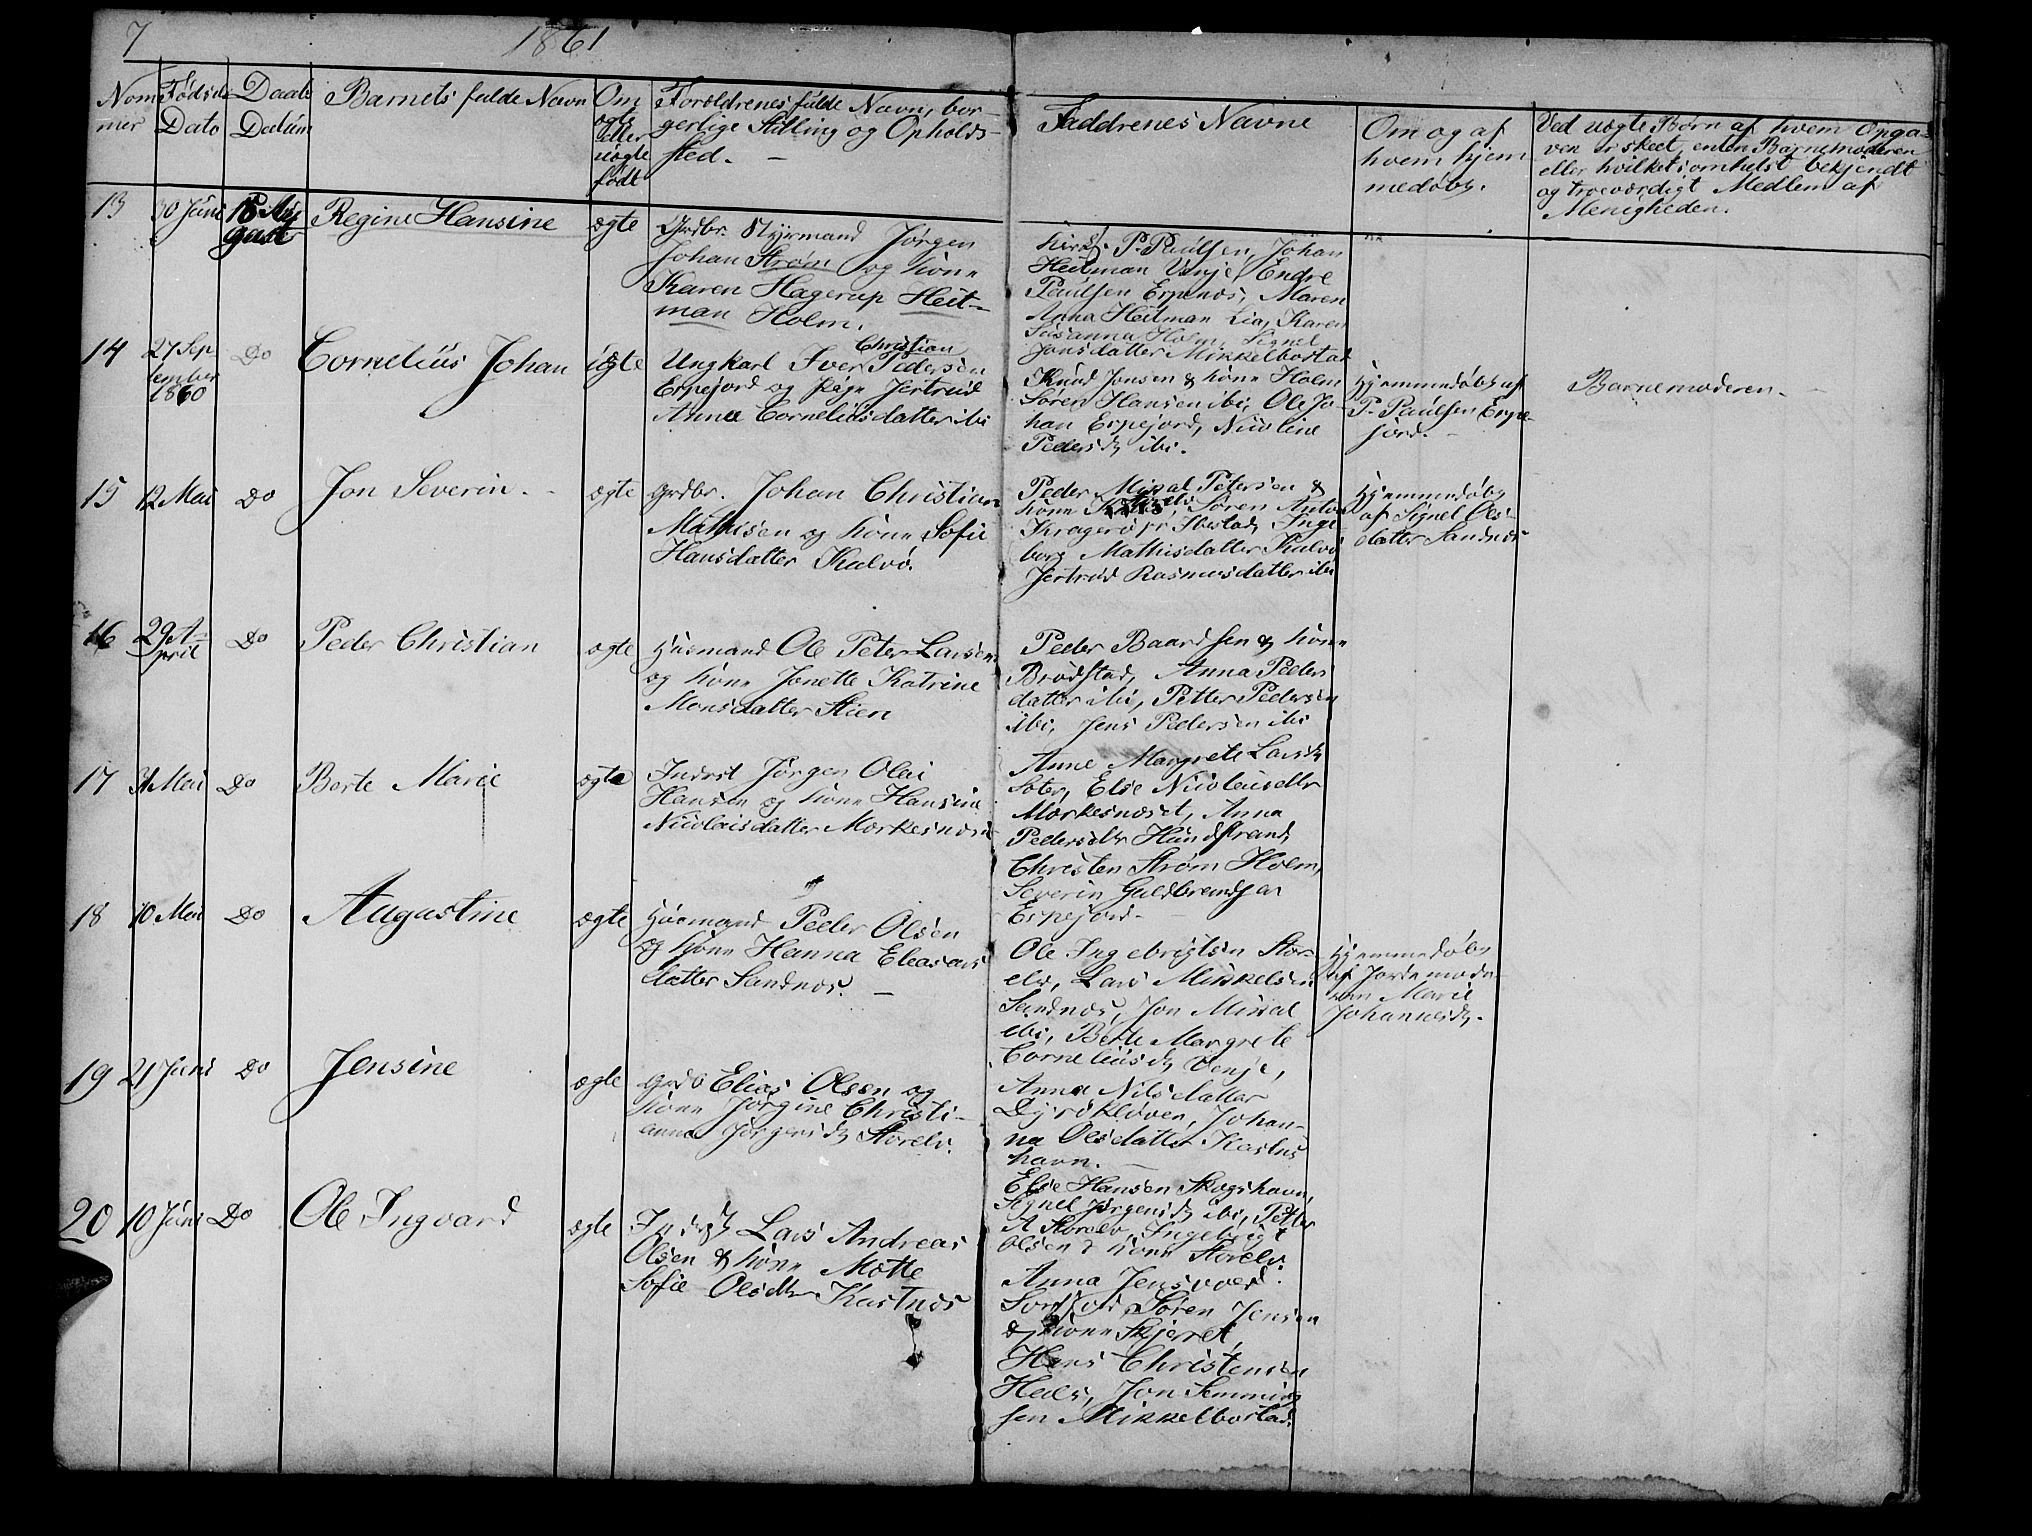 7
1861
Nom
mer
Fødsels
Dato
Daabs
Datum
Barnets fulde Navn
Om
ægte
eller
uægte
født
Forældrenes fulde Navn, bor
gerlige Stilling og Opholds-
sted. -
Faddrenes Navne
Om og af
hvem hjem
medøbt.
Ved uægte Børn af hvem Opga-
ven er skeet, enten Barnemoderen
eller hvilketsomhelst bekjendt
og troeværdigt Medlem af
Menigheden.
13
30 Juni
18 Au
gust
Regine Hansine
ægte
Grdbr. Styrmand Jørgen
Johan Strøm og kone
Karen Hagerup Heit-
man Holm.
P. Paulsen, Johan
Heitman Vinje, Endre
Paulsen Erpenæs, Maren
Anna Heitman Lia, Karen
Susanna Holm, Signel
Jonsdatter Mikkelbostad
14
27 Sep
tember
1860
Do
Cornelius Johan
uægte
Christian
Ungkarl Iver Pedersen
Erpejord og Pige Jertrud
Anna Corneliusdatter ibi
Knud Jonsen & kone Holm
Søren Hansen ibi, Ole Jo-
han Erpejord, Nicoline
Pedersd ibi.
Hjemmedøbt af
P. Paulsen Erpe-
jord. -
Barnemoderen. -
15
12 Mai
Do
Jon Severin. -
ægte
Grdbr. Johan Christian
Mathisen og kone Sofie
Hansdatter Kalvø.
Peder Missal Petersen &
kone Storelv, Søren Anton
Kragerø Ibestad, Inge-
borg Mathisdatter Kalvø
Jertrud Rasmusdatter ibi
Hjemmedøbt
af Signel Ols-
datter Sandnæs
16
29 A-
pril
Do
Peder Christian
ægte
Husmand Ole Peter Larsen
og kone Jonette Katrine
Monsdatter Stien
Peder Baardsen & kone
Brødstad, Anna Peders
datter ibi, Petter Pedersen
ibi, Jens Pedersen ibi
17
31 Mai
Do
Berte Marie
ægte
Inderst Jørgen Olai
Hansen og kone Hansine
Nicolaisdatter Mørkesnæset
Anne Margrete Larsd
Soler, Else Nicolaisdtr
Mørkesnæset, Anna
Pedersdtr Hundstrand,
Christen Strøm Holm,
Severin Guldbrandsen
Erpejord. -
18
10 Mai
Do
Augustine
ægte
Husmand Peder Olsen
og kone Hanna Eleasars
datter Sandnæs. -
Ole Ingebrigtsen Stor-
elv, Lars Mikkelsen
Sandnæs, Jon Missal
ibi, Berte Margrete
Corneliusd Vinje,
Hjemmedøbt
af Jordemode-
ren Marie
Johannesd.
19
21 Juni
Do
Jensine
ægte
Grdb Elias Olsen og
kone Jørgine Christi-
anna Jørgensd Storelv.
Anna Nilsdatter
Dyrøkløven, Johan-
na Olsdatter Kastnæs
havn. -
Else Hansen Skogshavn,
Signel Jørgensd ibi, Petter
A Storelv, Ingebrigt
Olsen & kone Storelv.
20
10 Juni
Do
Ole Ingvard
ægte
Inderst Lars Andreas
Olsen & kone Mette
Sofie Olsdtr Kastnæs
Anna Jensvold
Sørfjord, Søren Jensen
& kone Skjerret,
Hans Christensen
Hals, Jon Semming
sen Mikkelbostad.